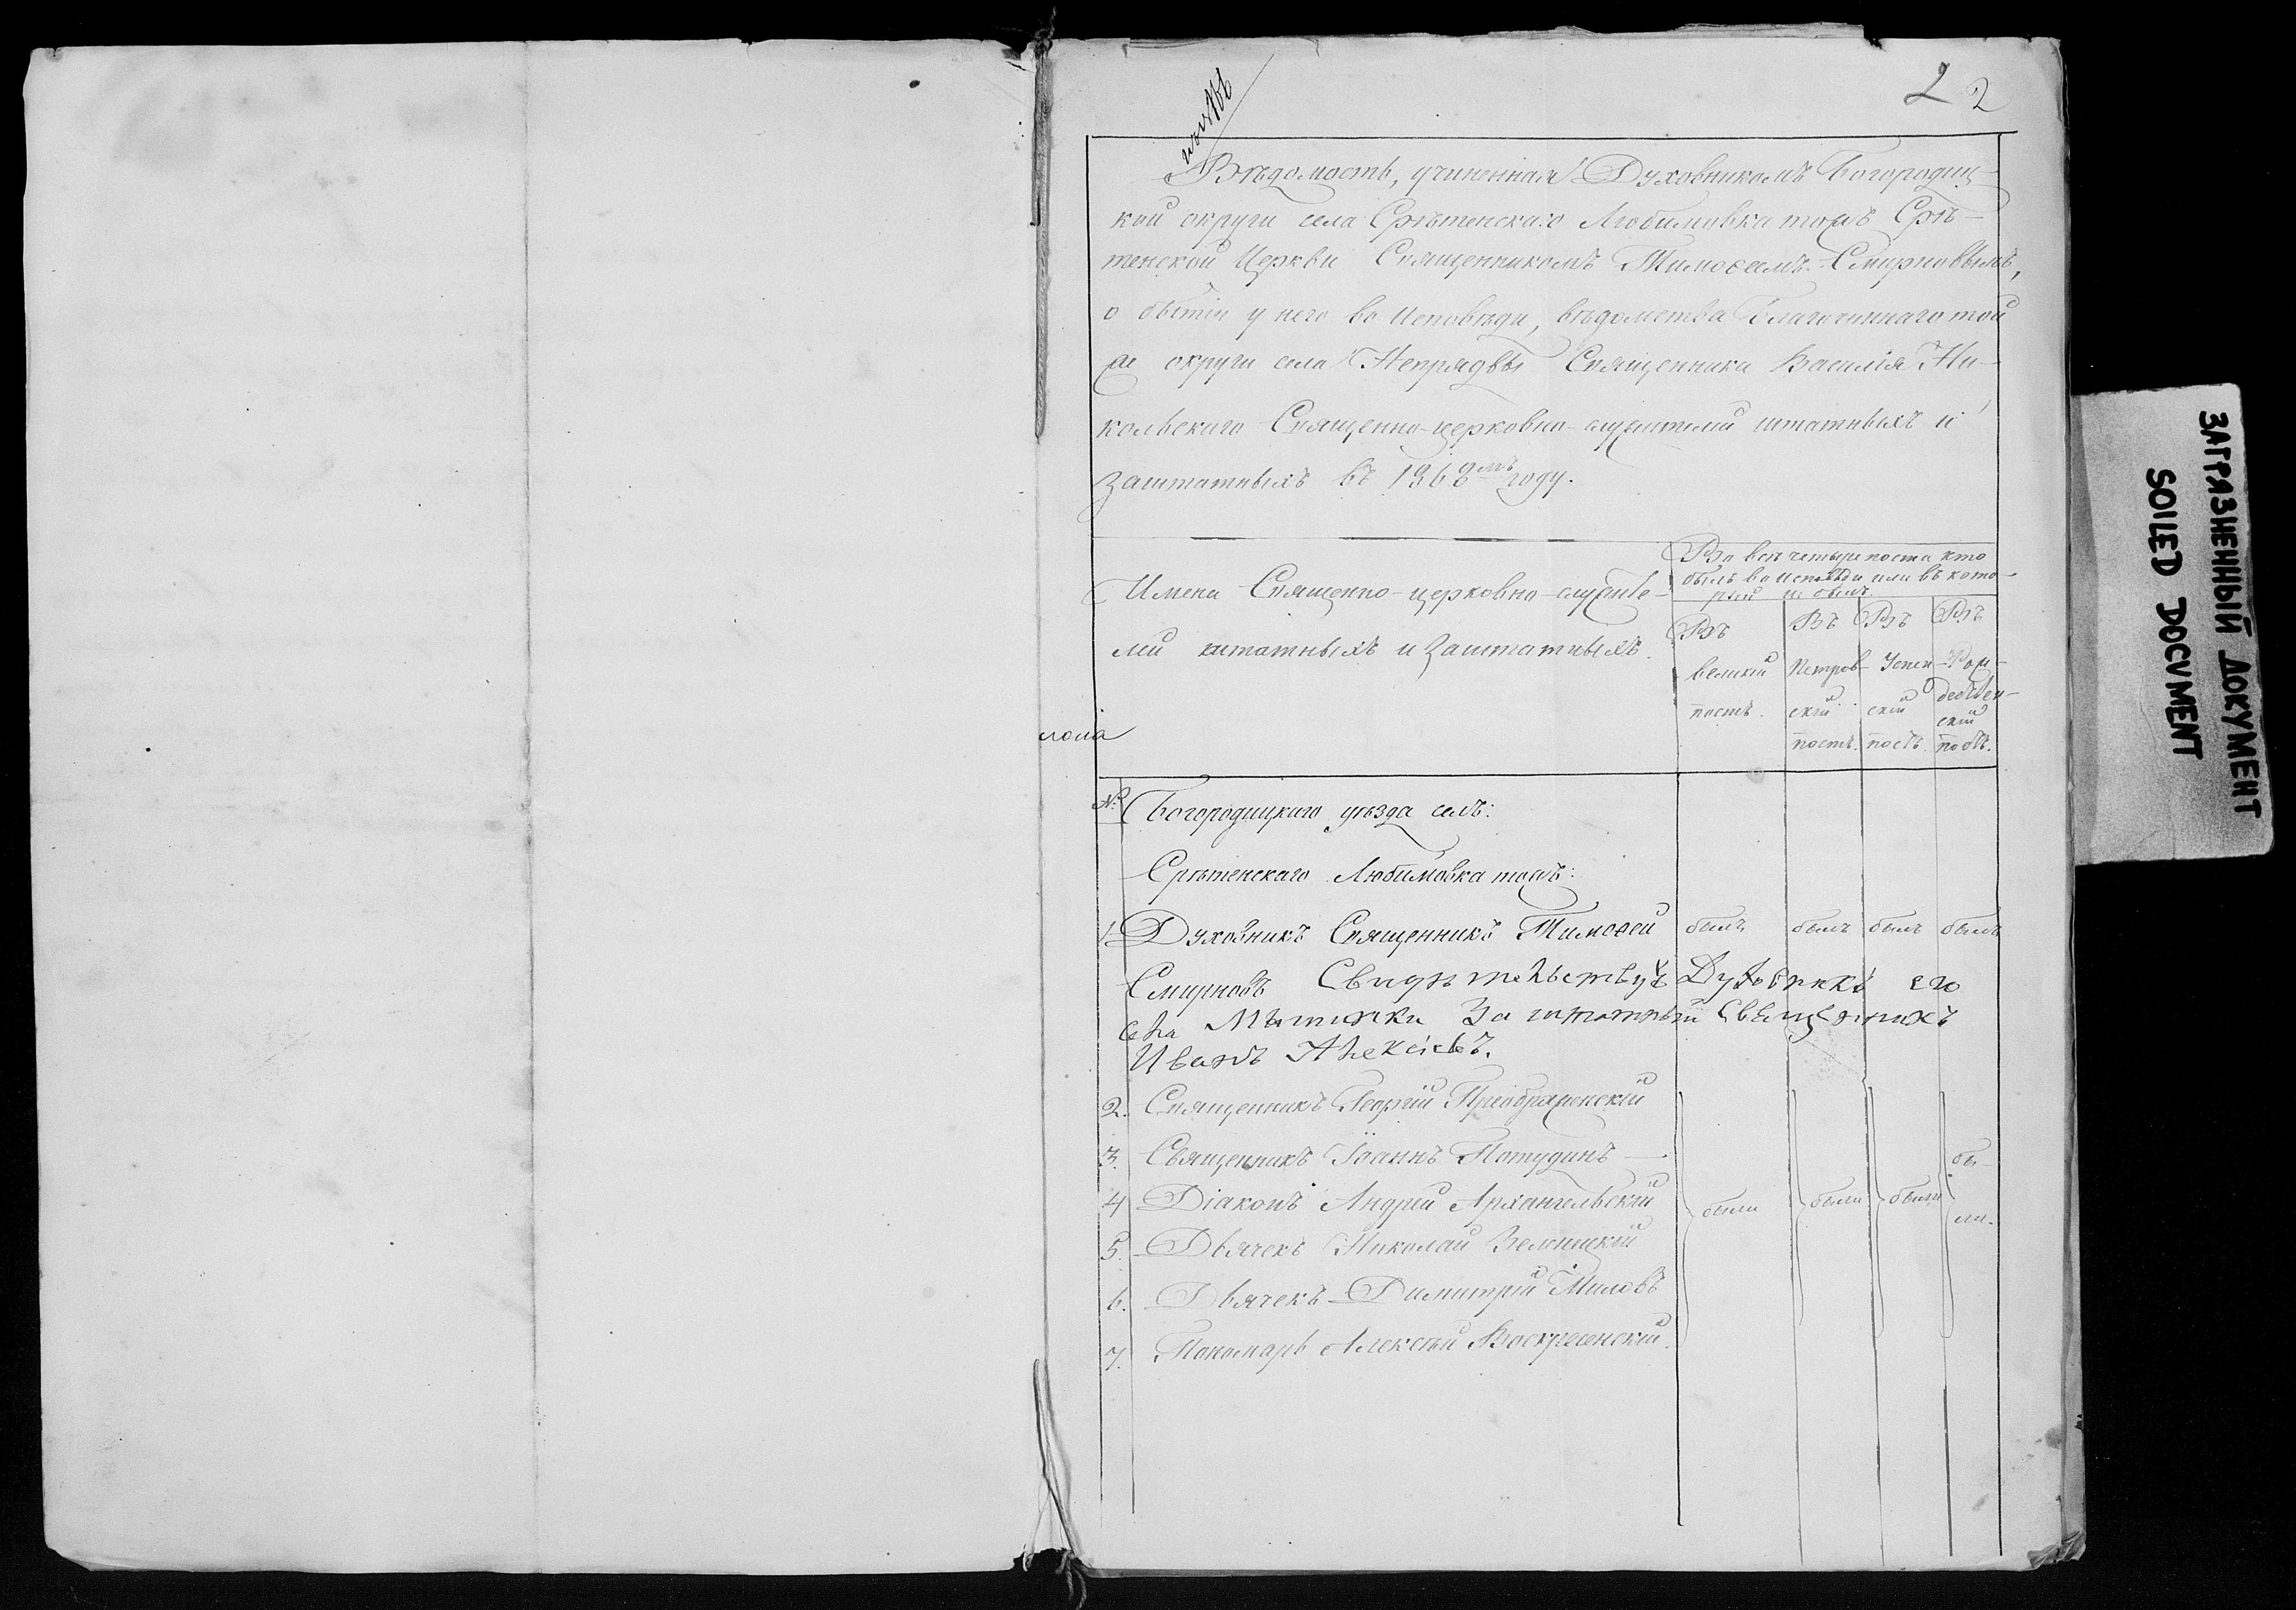 2 2
Вѣдомость, учиненная Духовникомъ Богородиц-
кой округи села Срѣтенскаго Любимовка тожъ Срѣ-
тенской Церкви Священникомъ Тимоѳеемъ Смирновымъ,
о бытіи у него во Исповѣди, вѣдомства Благочиннаго той
же округи села Непрядвы Священника Василія Ни-
кольскаго Священно-церковно-служителей штатныхъ и
заштатныхъ въ 1868мъ году.
Имена Священно-церковно-служите-
лей штатныхъ и заштатныхъ.
Во всѣ четыре поста кто
былъ во исповѣди или въ кото-
рый не былъ
Въ великій постъ.
Въ Петров-скій постъ.
Въ Успен-скій постъ.
Въ Рож-дествен-скій постъ.
№ Богородицкаго уѣзда селъ:
Срѣтенскаго Любимовка тожъ:
1. Духовникъ Священникъ Тимоѳей былъ былъ былъ былъ
Смирновъ Свидѣтельствуетъ Духовникъ его
села Мшищи Заштатный Священникъ
Иванъ Алексѣевъ.
2. Священникъ Георгій Преображенскій
3. Священникъ Іоаннъ Потудинъ — бы-
4 Діаконъ Андрей Архангельскій были были были ли.
5. Дьячекъ Николай Зеленецкій
6. Дьячекъ Димитрій Миловъ
7. Пономарь Алексѣй Воскресенскій.
ЗАГРЯЗНЕННЫЙ ДОКУМЕНТ
SOILED DOCUMENT